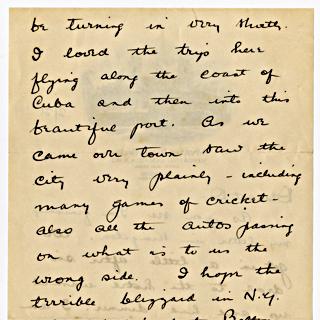 be turning in very shortly.
I loved the trip here
flying along the coast of
Cuba and then into this
beautiful port. As we
came over town saw the
city very plainly - including
many games of cricket -
also all the autos passing
on what is to us the
wrong side. I hope the
terrible blizzard in N.Y.